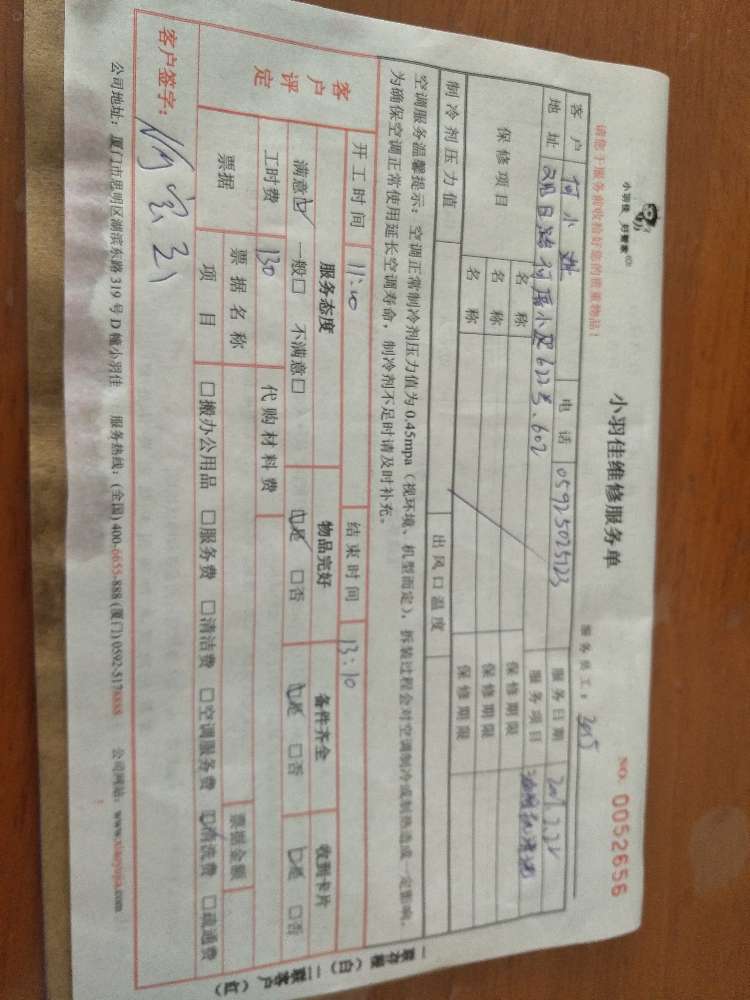 小羽佳 好管家
请您于服务前收拾好您的贵重物品!
小羽佳维修服务单
NO. 0052656
服务员工: 2015
客户 何小 电话 05925025123
服务日期
地址 小区622号.602
服务项目 油烟机清洗
保修项目
名称 保修期限
名称 保修期限
名称 保修期限
制冷剂压力值 出风口温度
空调服务温馨提示:空调正常制冷剂压力值为0.45mpa(视环境、机型而定),拆装过程会对空调制冷或制热造成一定影响,
为确保空调正常使用延长空调寿命,制冷剂不足时请及时补充。
开工时间 11:10 结束时间 13:10
客户评定
服务态度 物品完好 备件齐全 收到卡片
满意☑ 一般□ 不满意□ ☑是 □否 ☑是 □否 ☑是 □否
工时费 130 代购材料费
票据 票据名称 票据金额
项目 □搬办公用品 □服务费 □清洁费 □空调服务费 ☑清洗费 □疏通费
客户签字:
公司地址:厦门市思明区湖滨东路319号D幢小羽佳 服务热线:(全国)400-6655-888 (厦门)0592-5178888 公司网站:www.xiaoyujia.com
一联存根(白) 二联客户(红)